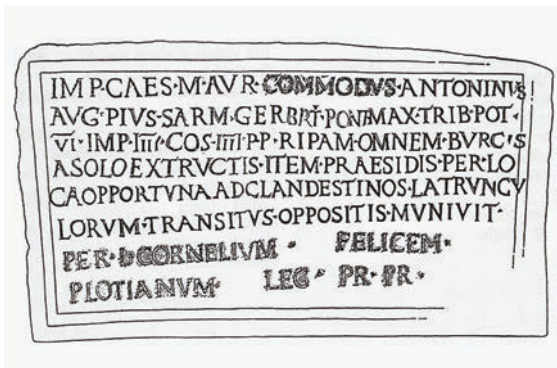 IMP·CAES·M·AVR·COMMODVS·ANTONINVS
AVG·PIVS·SARM·GER·BRIT·PONT·MAX·TRIB·POT·
VI·IMP·IIII·COS·IIII·PP·RIPAM·OMNEM·BVRGIS
ASOLOEXTRVCTIS·ITEM·PRAESIDIS·PER·LO
CAOPPORTVNAADCLANDESTINOS·LATRVNCV
LORVM·TRANSITVS·OPPOSITIS·MVNIVIT·
PER·L·CORNELIVM FELICEM·
PLOTIANVM· LEG· PR·PR·